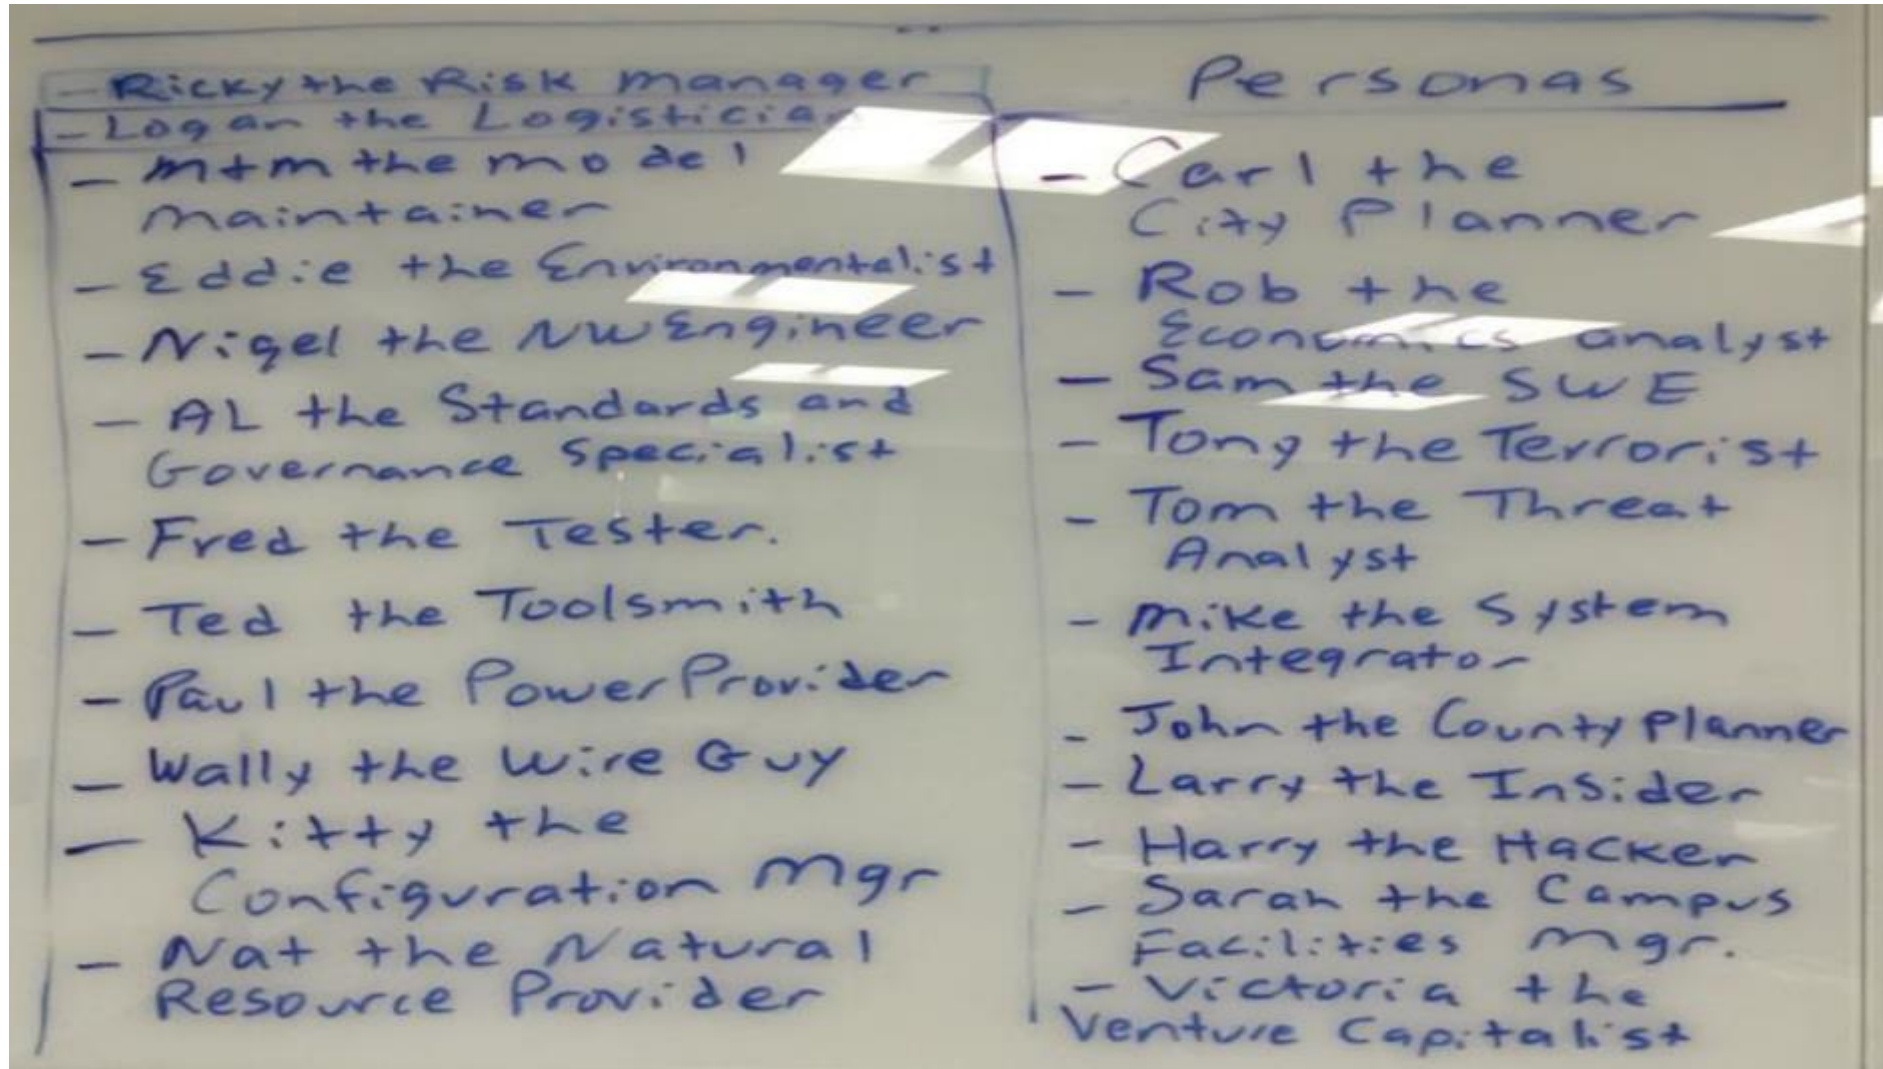 - Ricky the Risk Manager
- Logan the Logistician
- MtM the Model
Maintainer
- Eddie the Environmentalist
- Nigel the NW Engineer
- AL the Standards and
Governance Specialist
- Fred the Tester.
- Ted the Toolsmith
- Paul the Power Provider
- Wally the Wire Guy
- Kitty the
Configuration Mgr
- Nat the Natural
Resource Provider
Personas
- Carl the
City Planner
- Rob the
Economics analyst
- Sam the SWE
- Tony the Terrorist
- Tom the Threat
Analyst
- Mike the System
Integrator
- John the County Planner
- Larry the Insider
- Harry the Hacker
- Sarah the Campus
Facilities Mgr.
- Victoria the
Venture Capitalist